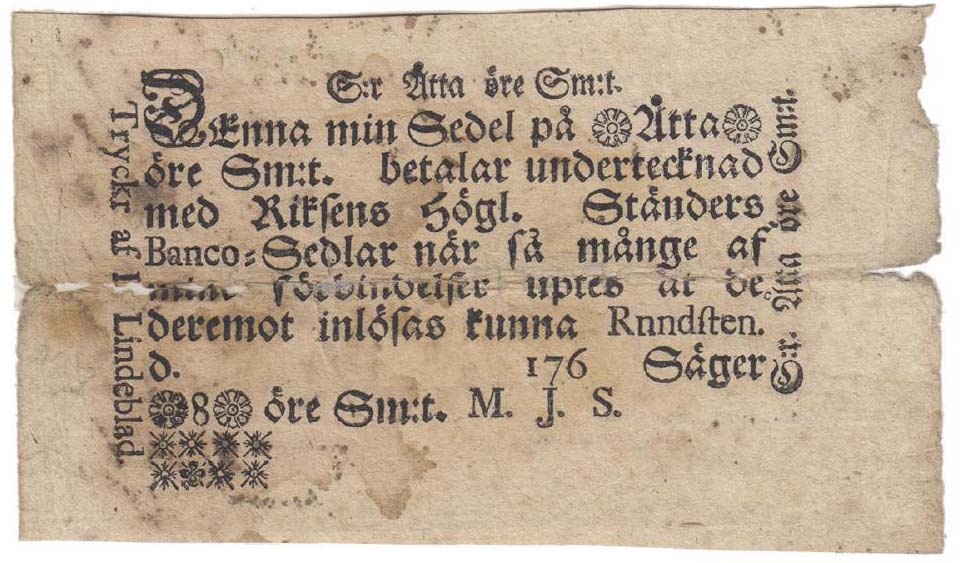 S:r Åtta öre Sm:t.
DEnna min Sedel på Åtta
öre Sm:t. betalar undertecknad
med Riksens Högl. Ständers
Banco-Sedlar när så månge af
mine förbindelser uptes at de
deremot inlösas kunna Rnndsten.
d. 176 Säger
8 öre Sm:t. M. J. S.
Tryckr af L Lindeblad.
S:r. Åtta öre Smt.